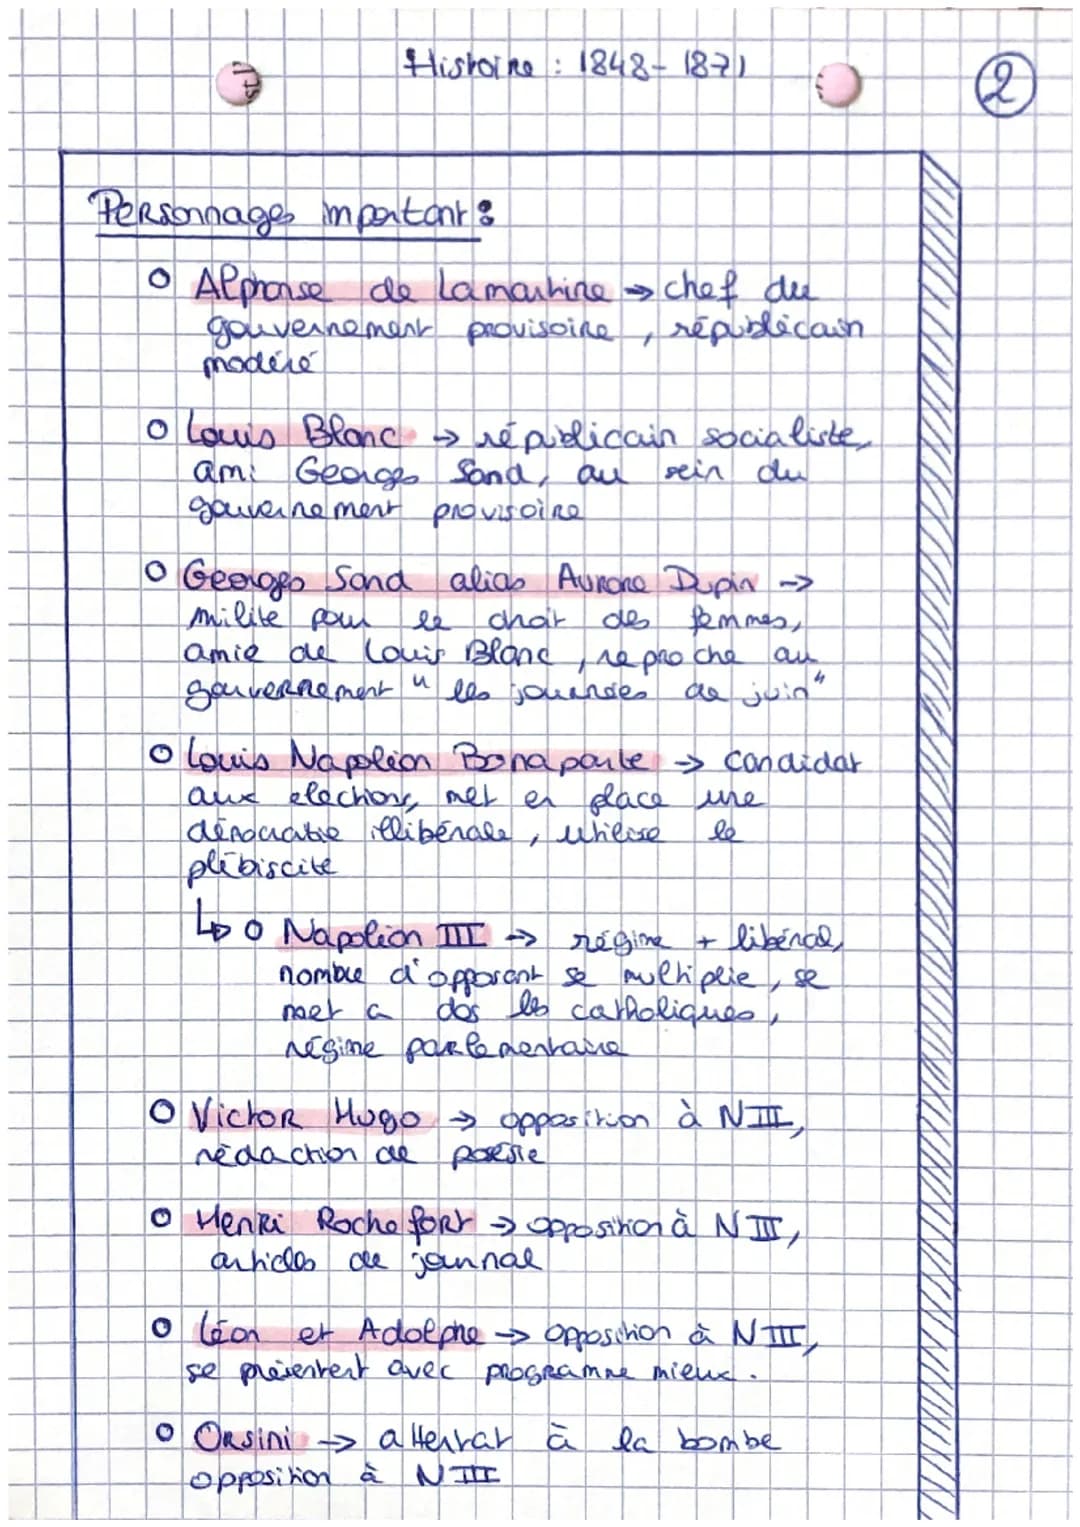 Histoire : 1848-1871
2
Personnages important :
o Alphonse de Lamartine → chef du
gouvernement provisoire , républicain
modéré
o Louis Blanc → républicain socialiste,
ami Georges Sand, au sein du
gouvernement provisoire
o Georges Sand alias Aurore Dupin →
milite pour le droit des femmes,
amie de Louis Blanc , reproche au
gouvernement " les journées de juin"
o Louis Napoléon Bonaparte → candidat
aux elections, met en place une
démocratie illibérale , utilise le
plébiscite
↳ o Napoléon III → régime + libéral,
nombre d'opposant se multiplie , se
met a dos les catholiques ,
régime parlementaire
o Victor Hugo → opposition à NIII,
rédaction de poésie
o Henri Rochefort → opposition à NIII,
articles de journal
o Léon et Adolphe → opposition à NIII,
se présentent avec programme mieux .
o Orsini → attentat à la bombe
opposition à NIII